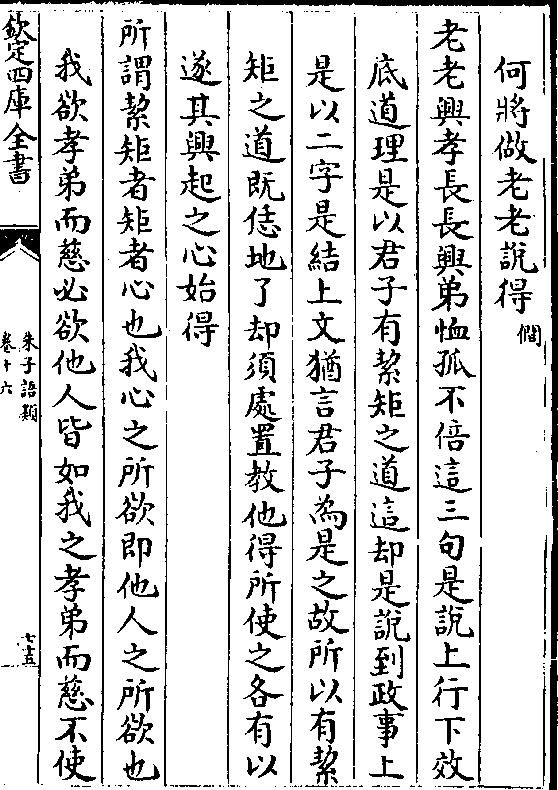 何將做老老說得僩
老老興孝長長興弟恤孤不倍這三句是說上行下效
底道理是以君子有絜矩之道這却是說到政事上
是以二字是結上文猶言君子為是之故所以有絜
矩之道既恁地了却須處置教他得所使之各有以
遂其興起之心始得
所謂絜矩者矩者心也我心之所欲即他人之所欲也
我欲孝弟而慈必欲他人皆如我之孝弟而慈不使
欽定四庫全書
朱子語類
卷十六
七十五